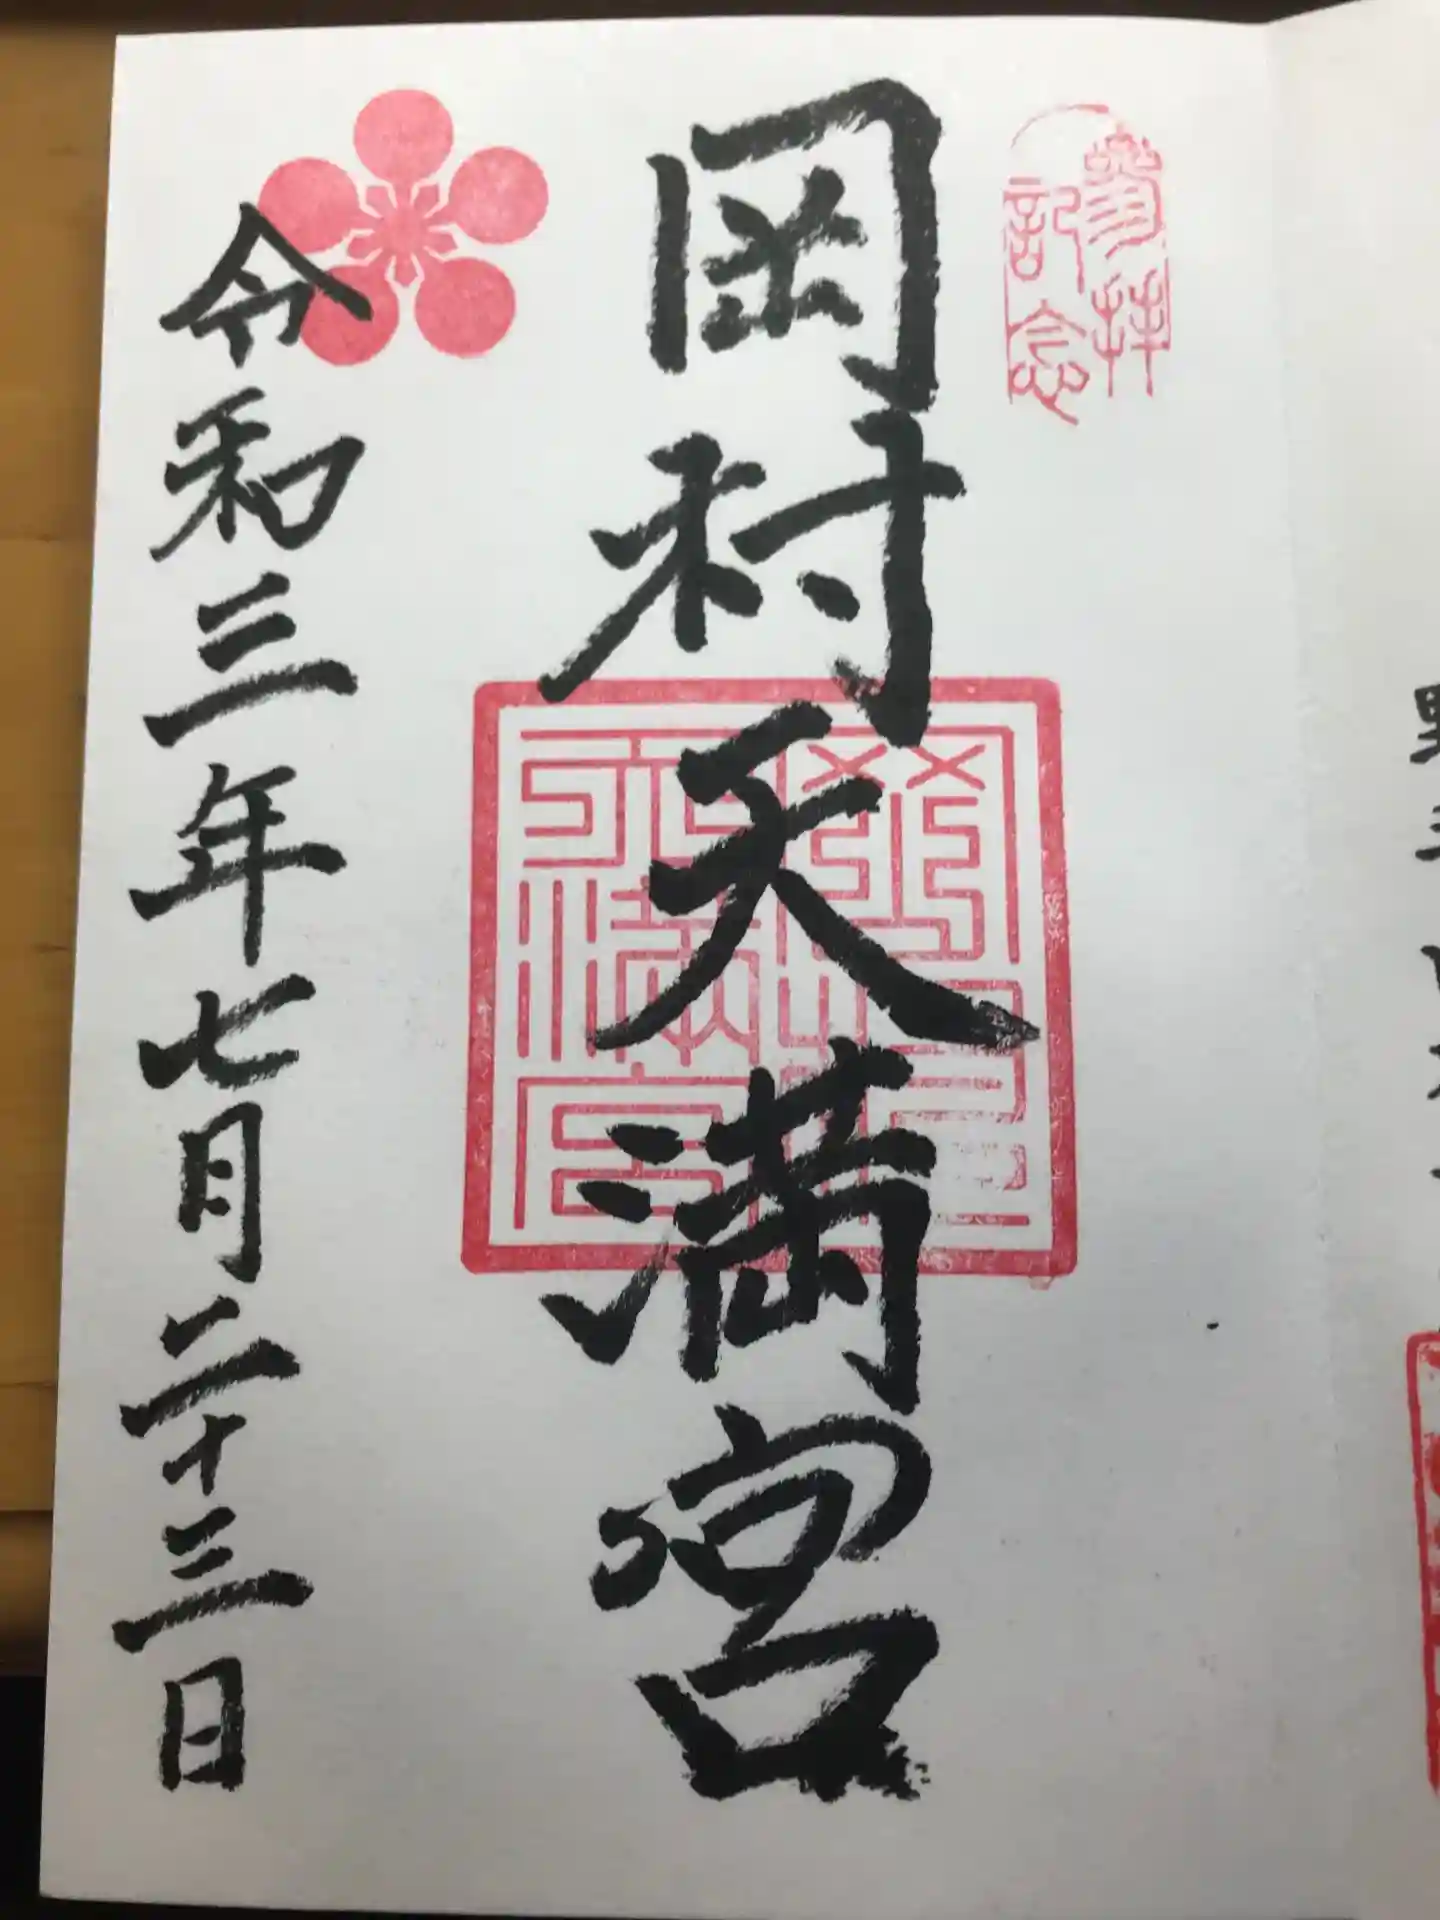 参拝記念
岡村天満宮
令和三年七月二十三日